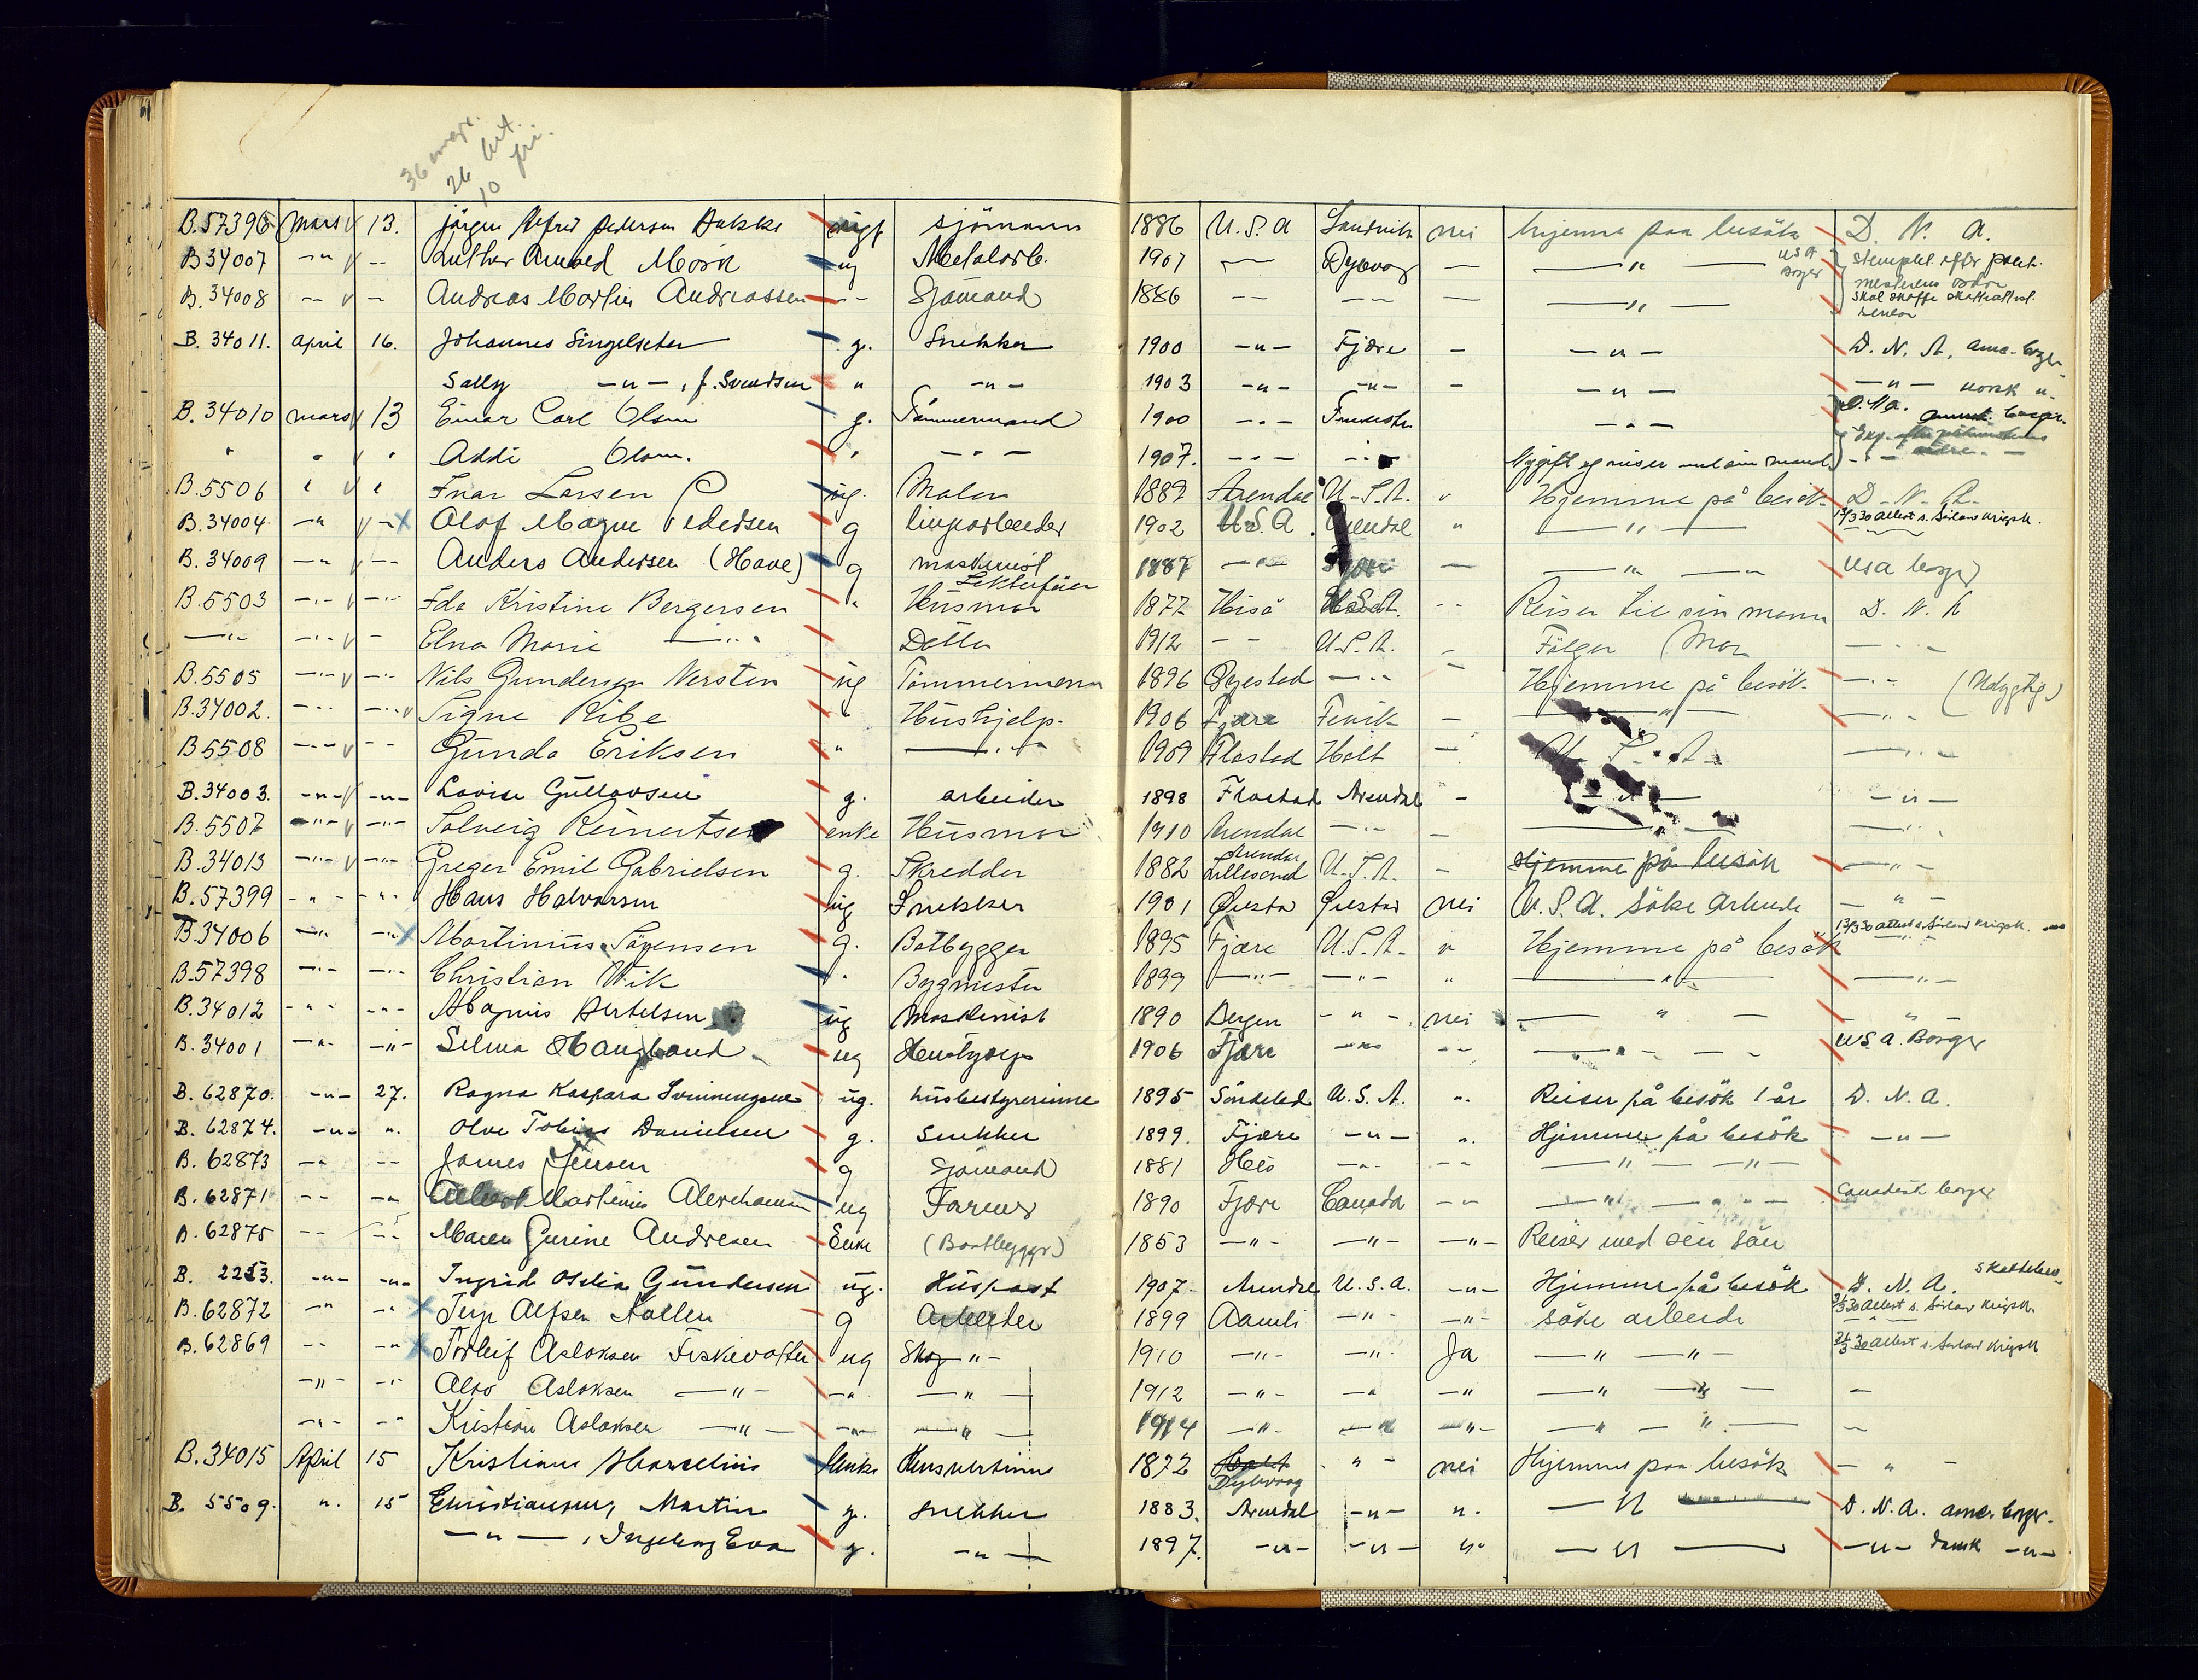 36
26 bet.
10 fri.
B.57396 Mars 13. Jörgen Alfred Pedersen Bakke ugt sjömann 1886 U.S.A Sandvik nei hjemme paa besök D. N. A.
B 34007 -"- -- Luther Arnold Mörk ug Metalarb. 1907 -- Dybvag — —"— USA Borger stemplet efter polit-
mesterens ordre
B. 34008 -- - Andreas Martin Andreassen -- Sjømand 1886 -- -- — —"— skal skaffe skatteattest senere
B. 34011. april 16. Johannes Singelseter g. Snekker 1900 -"- Fjære - -"- D. N. A. ame. borger
Sally -"-, f. Svendsen " -"- 1903 -"- -"- - -"- -"- norsk "-
B. 34010 mars 13 Einar Carl Olsen g. Tömmermand 1900 -"- -"- D.N.A. amerik. borger.
" " " Addi Olsen. " -"- 1907. -"- -"- Nygift og reiser med sin mand -"-
B.5506 " " Einar Larsen ug. Maler 1889 Arendal U.S.A. " Hjemme på besök D.N.A.
B.34004 -" -" Olaf Magne Pedersen g linjearbeider 1902 U.S.A. Arendal " —"— 13/3 30 attest s. Sörland krigsk.
B. 34009 -"- -- Anders Andersen (Hove) g maskinist 1887 -"- Fjære — —"— —"— USA borger
B.5503 -"- -"- Ida Kristine Bergersen " Husmor 1877 Hisö U.S.A. -- Reiser til sin mann D. N. A
—"— -"- - Elna Marie —"— Datter 1912 -- U.S.A. - Fölger Mor —"—
B.5505 -"- -"- Nils Gundersen Nersten ug Tömmermann 1896 Öyestad -"- — Hjemme på besök -"- (Udygtig)
B.34002. -"- -"- Signe Ribe " Hushjelp. 1906 Fjære Fevik — —"— —"—
B5508 -"- -- Gunda Eriksen " —"— 1907 Flostad Holt — U.S.A. —"—
B.34003. -"- -"- Lovise Gullovsen g. arbeider 1898 Flostad Arendal - —"— -"-
B.5507 -"- -"- Solveig Reinertsen enke Husmor 1910 Arendal -"- — —"— —"—
B.34013 -"- -"- Greger Emil Gabrielsen g. Skredder 1882 Arendal Lillesand U.S.A. - Hjemme på besök —"—
B.57399 -"- -"- Hans Halvorsen ug Snekker 1901 nei U.S.A. söke arbeide — " —
B.34006 -"- -" Martinius Sörensen g. Båtbygger 1895 Fjære U.S.A. " Hjemme på besök 13/3 30 attest s. Sörland krigsk.
B.57398 -"- -"- Christian Wik " Bygmester 1899 —"— -"- " —"— —"—
B.34012 -"- -"- Magnus Bertelsen ug Maskinist 1890 Bergen -"- nei — " — "
B. 34001 -"- -"- Selma Haugland ug Hushjelp 1906 Fjære -"- -- —"— USA. Borger
B. 62870. -"- 27. Ragna Kaspara ug. husbestyrerinne 1895 Söndeled U.S.A. ". Reiser på besök 1 år D. N. A.
B. 62874. -"- ". Olve Tobias Danielsen g. Snekker 1899. Fjære -"- ". Hjemme på besök -"-
B. 62873 -"- -- James Jensen g Sjømand 1881 Hisö -"- -- —"— —"—
B. 62871 -- -" Martinius ug Farmer 1890 Fjære Canada -- —"— Canadisk borger
B. 62875 -- -- Maren Gurine Andresen Enke (Baatbyggr.) 1853 —"- —"- —"- Reiser med sin sön
B. 2253. -"- -"- Ingrid Otilia Gundersen ug. Huspost 1907. Arendal U.S.A. -"- Hjemme på besök D. N. A.
B.62872 -"- -" Terje Alfsen g Arbeider 1899 Aamli -"- -"- söke arbeide 24/3 30 attest s. Sörland krigsk.
B. 62869 -- -" Torleif Aslaksen ug Skog -"- 1910 -"- -"- Ja —"— —"— 24/3 30 attest s. Sörland krigsk
-"- -"- Alav Aslaksen —"— -" —"— 1912 -"- -" -" —"— —"— —
-"- -"- Kristian Aslaksen —"— -"- —"— 1914 -"- -" -"- —"— " — —
B.34015 April 15 Kristiane Marcelius Enke Husvertinne 1872 Dybvaag " - nei Hjemme paa besök — " —
B. 5509. ". 15 Martin g. snekker 1883. Arendal -"- ". —"— D. N. A. ame. borger.
—"—, Ingeborg Eva g. -"- 1897. -"- -"- "- —"— -"- dansk -"-